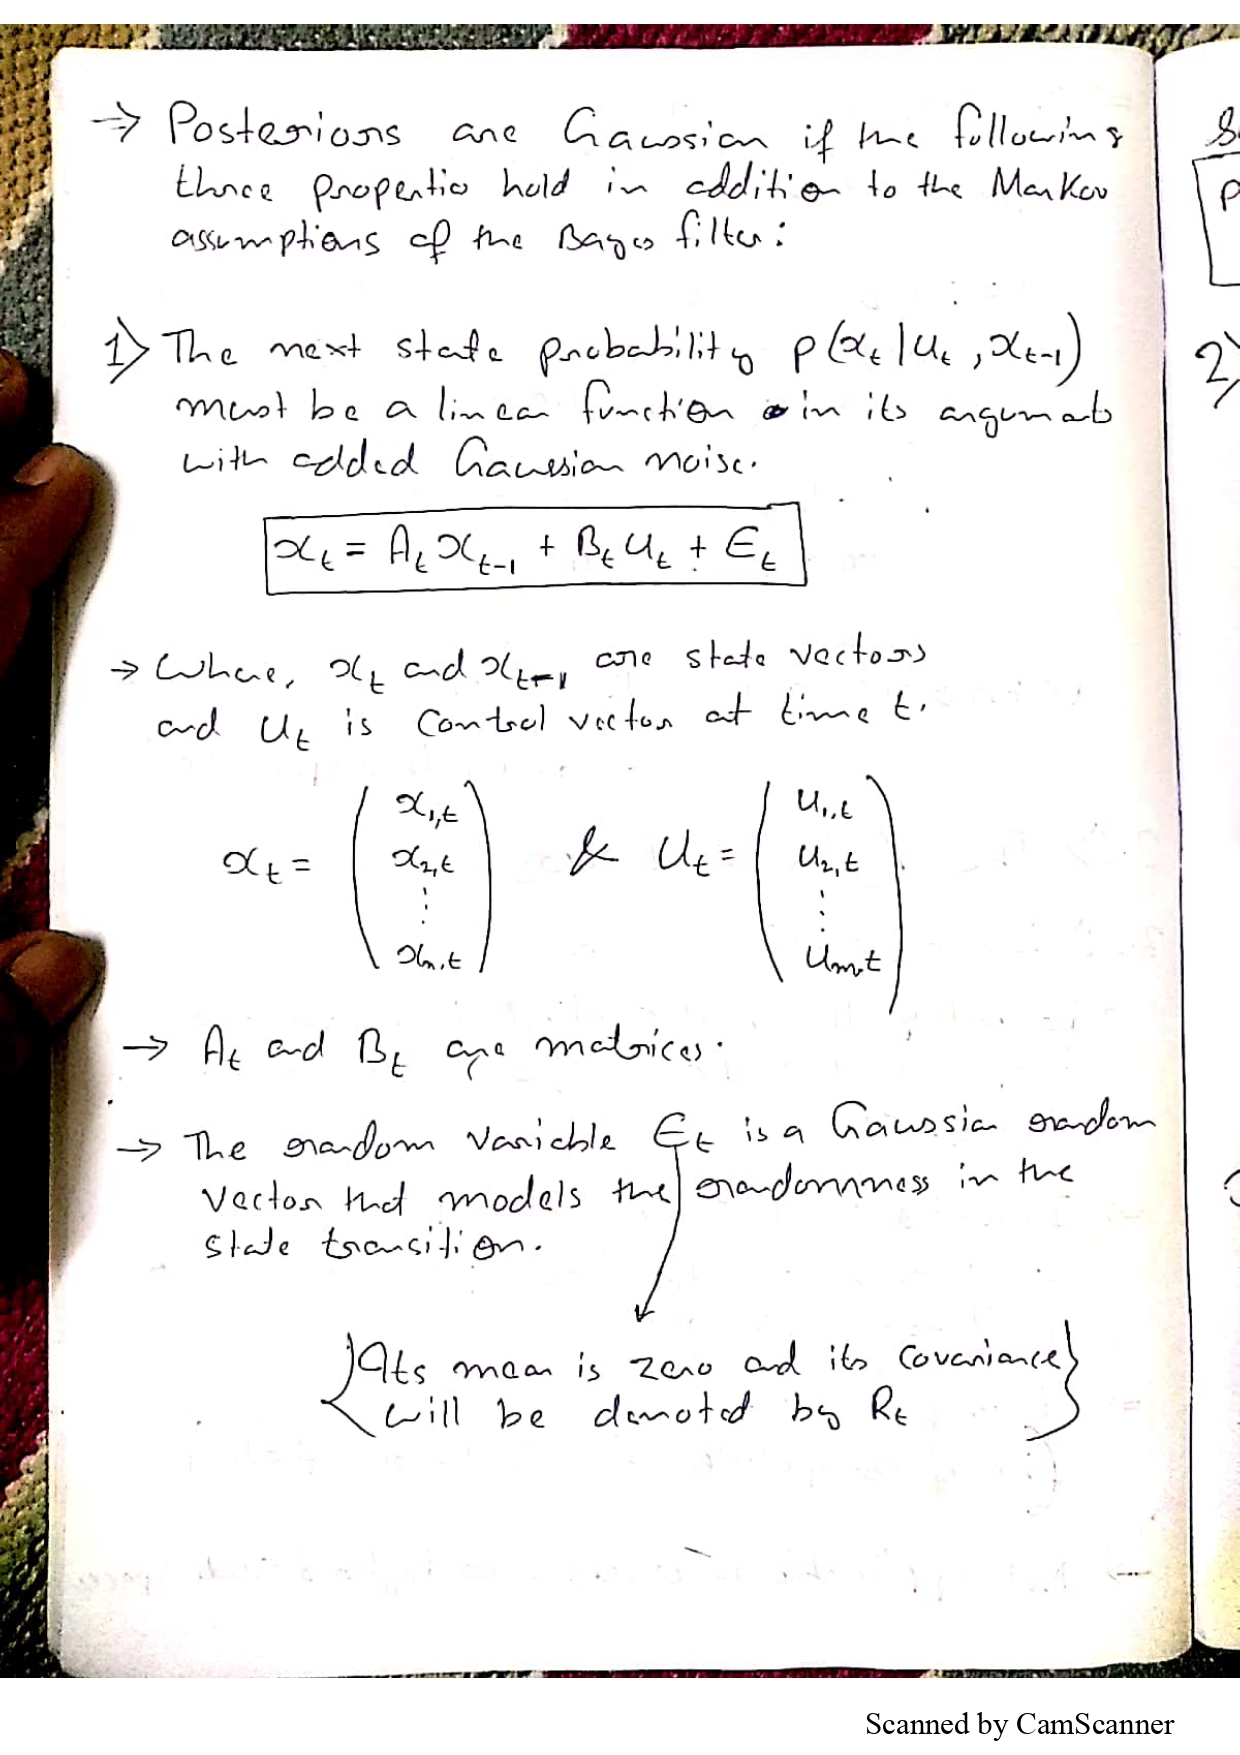 → Posteriors are Gaussian if the following
three properties hold in addition to the Markov
assumptions of the Bayes filter:
1) The next state probability p(x_t | u_t , x_{t-1})
must be a linear function in its arguments
with added Gaussian noise.
x_t = A_t x_{t-1} + B_t u_t + ε_t
→ Where, x_t and x_{t-1} are state vectors
and u_t is control vector at time t.
x_t = ( x_{1,t} x_{2,t} ⋮ x_{n,t} ) & u_t = ( u_{1,t} u_{2,t} ⋮ u_{m,t} )
→ A_t and B_t are matrices.
→ The random variable ε_t is a Gaussian random
vector that models the randomness in the
state transition.
{ Its mean is zero and its covariance
will be denoted by R_t }
2)
Scanned by CamScanner